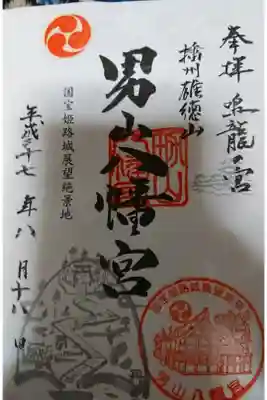 奉拝 鳴龍の宮
播州雄徳山
男山八幡宮
国宝姫路城展望絶景地
平成二十七年八月十八日
男山八幡宮